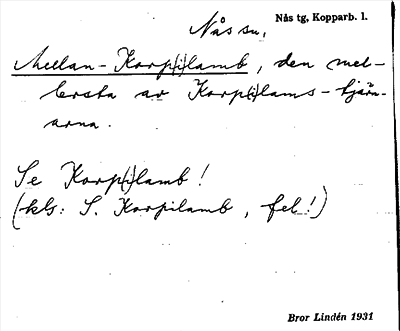 Nås sn. Nås tg, Kopparb. l.
Mellan-Korp(i)lamb, den mel-
lersta av Korp(i)lams-tjärn-
arna.
Se Korp(i)lamb!
(kls: S. Korpilamb, fel!)
Bror Lindén 1931